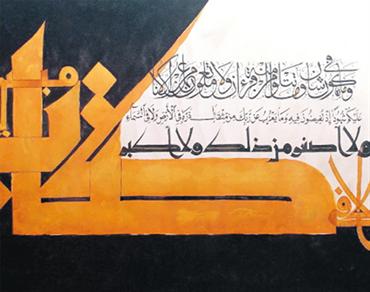 وما تكون في شأن وما تتلو منه من قرآن ولا تعملون من عمل إلا كنا
عليكم شهودا إذ تفيضون فيه وما يعزب عن ربك من مثقال ذرة في الأرض ولا في السماء
ولا أصغر من ذلك ولا أكبر